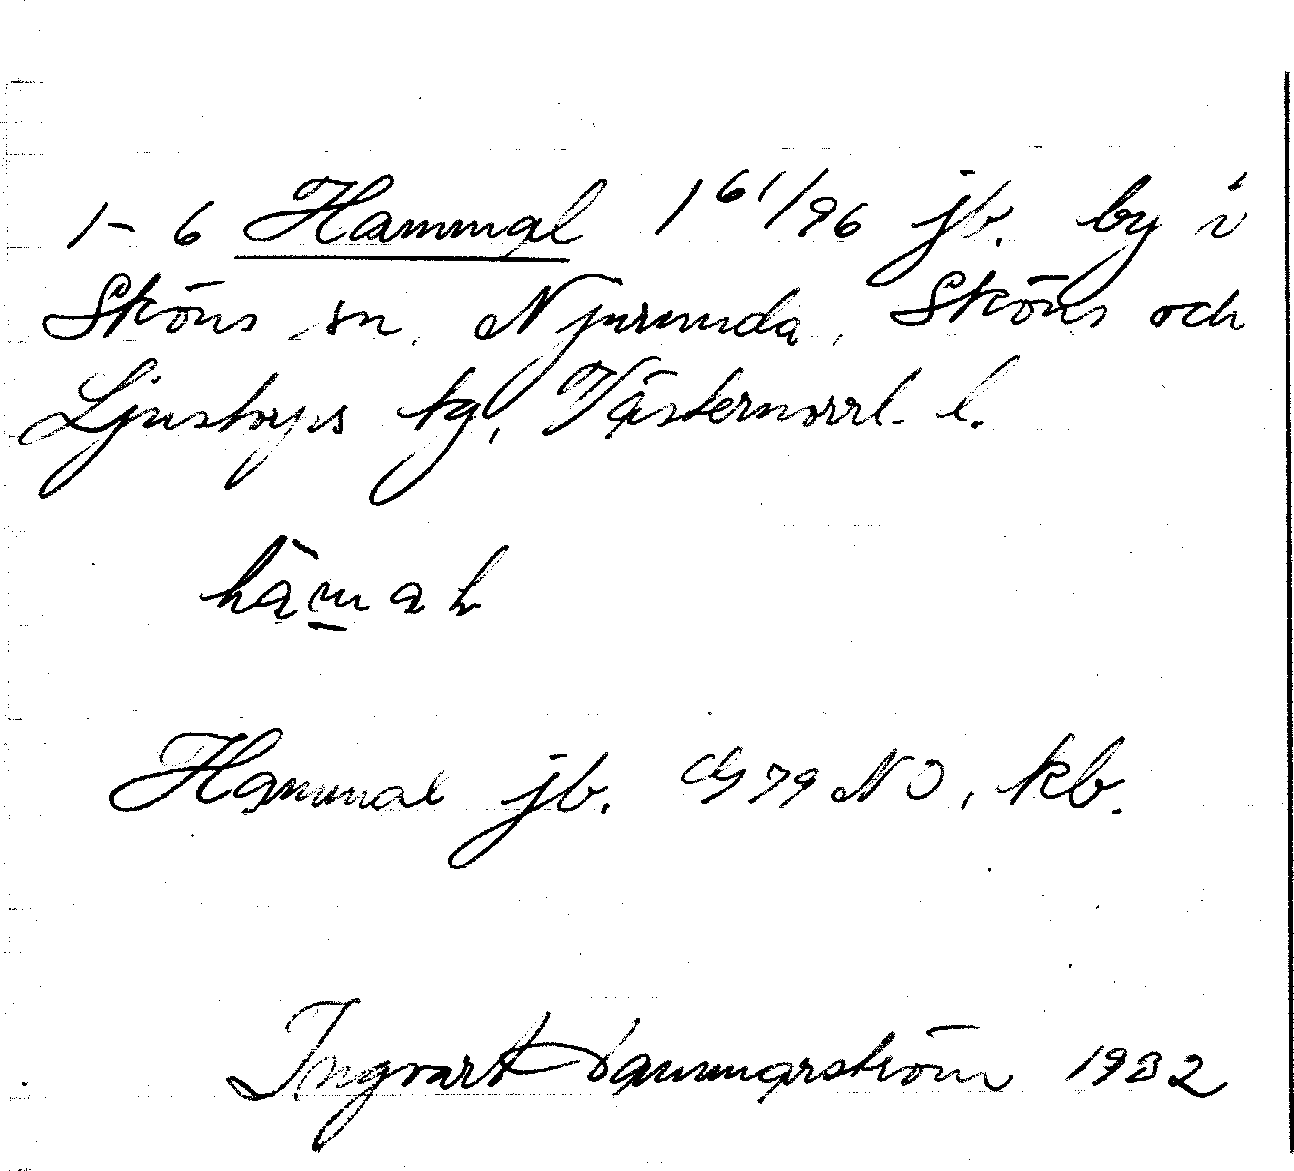 1-6 Hammal 1 61/96 jb. by i
Sköns sn. Njurunda, Sköns och
Ljustorps tg, Västernorrl. l.
Hammal jb. 79 NO, kb.
Ingvart Hammarström 1932